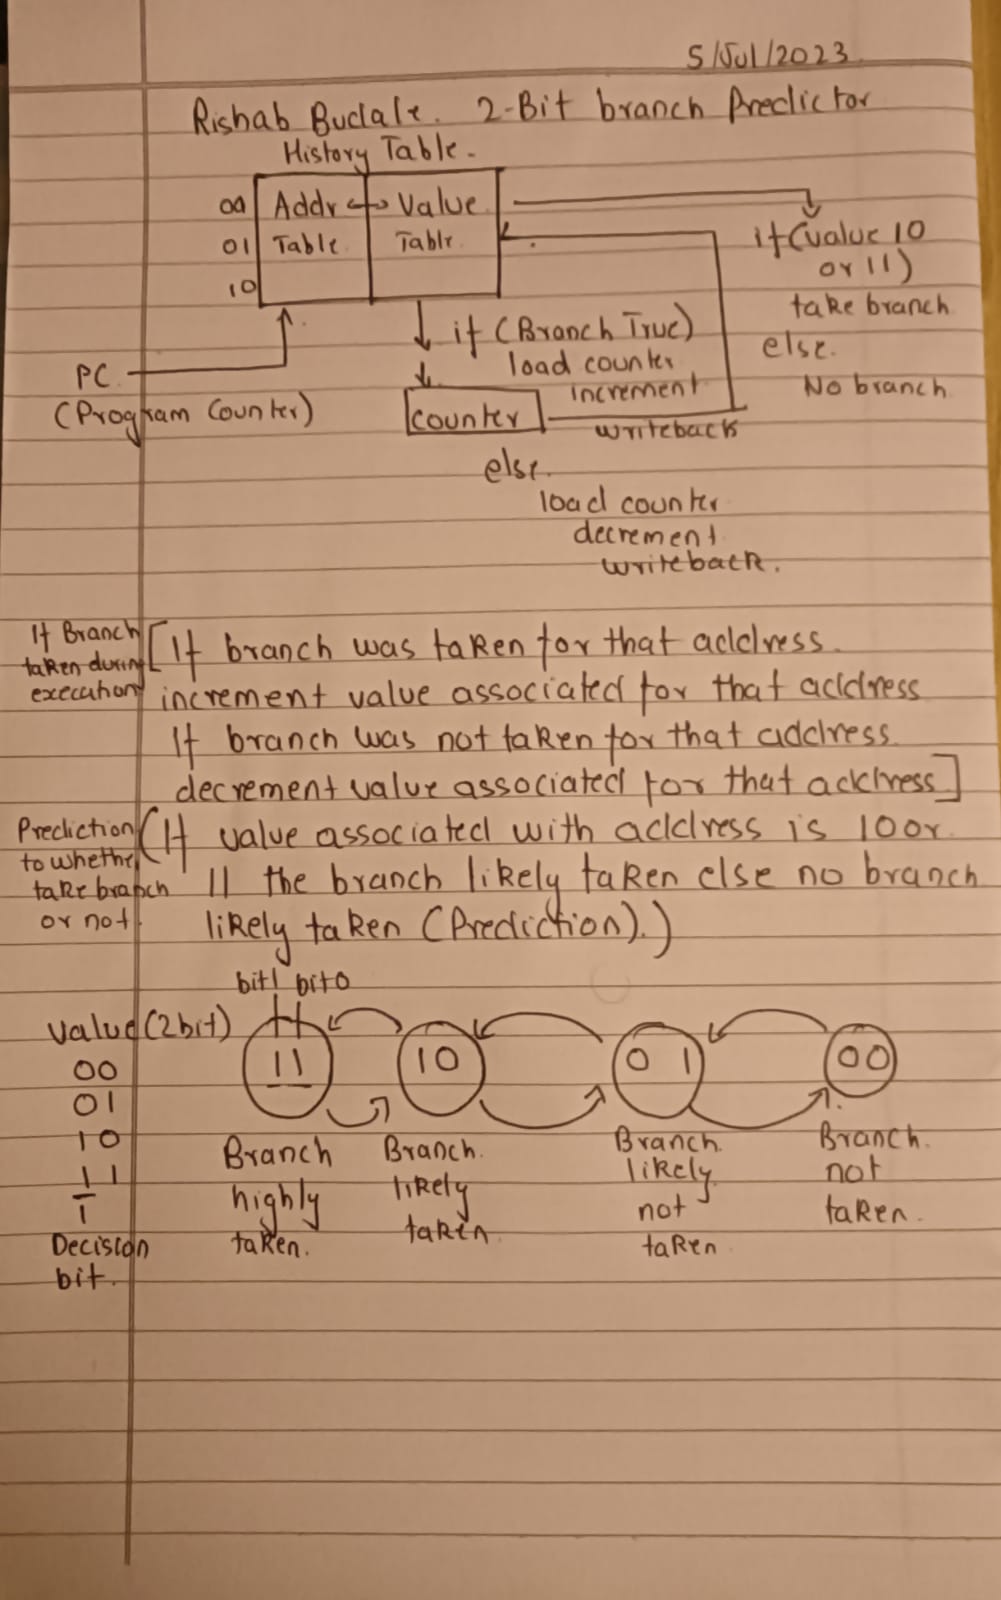 5/Jul/2023
Rishab Budale. 2-Bit branch Predictor
History Table.
00 Addr Value
01 Table Table
10
if (value 10
or 11)
take branch
else.
No branch
PC
(Program Counter)
if (Branch True)
load counter
increment
writeback
counter
else.
load counter
decrement
writeback.
If Branch
taken during
execution
[If branch was taken for that address.
increment value associated for that address
If branch was not taken for that address.
decrement value associated for that address]
Prediction
to whether
take branch
or not.
(If value associated with address is 10 or
11 the branch likely taken else no branch
likely taken (Prediction).)
bit1 bit0
Value (2bit)
00
01
10
11
1
Decision
bit.
11 10 01 00
Branch
highly
taken.
Branch.
likely
taken
Branch.
likely
not
taken
Branch.
not
taken.